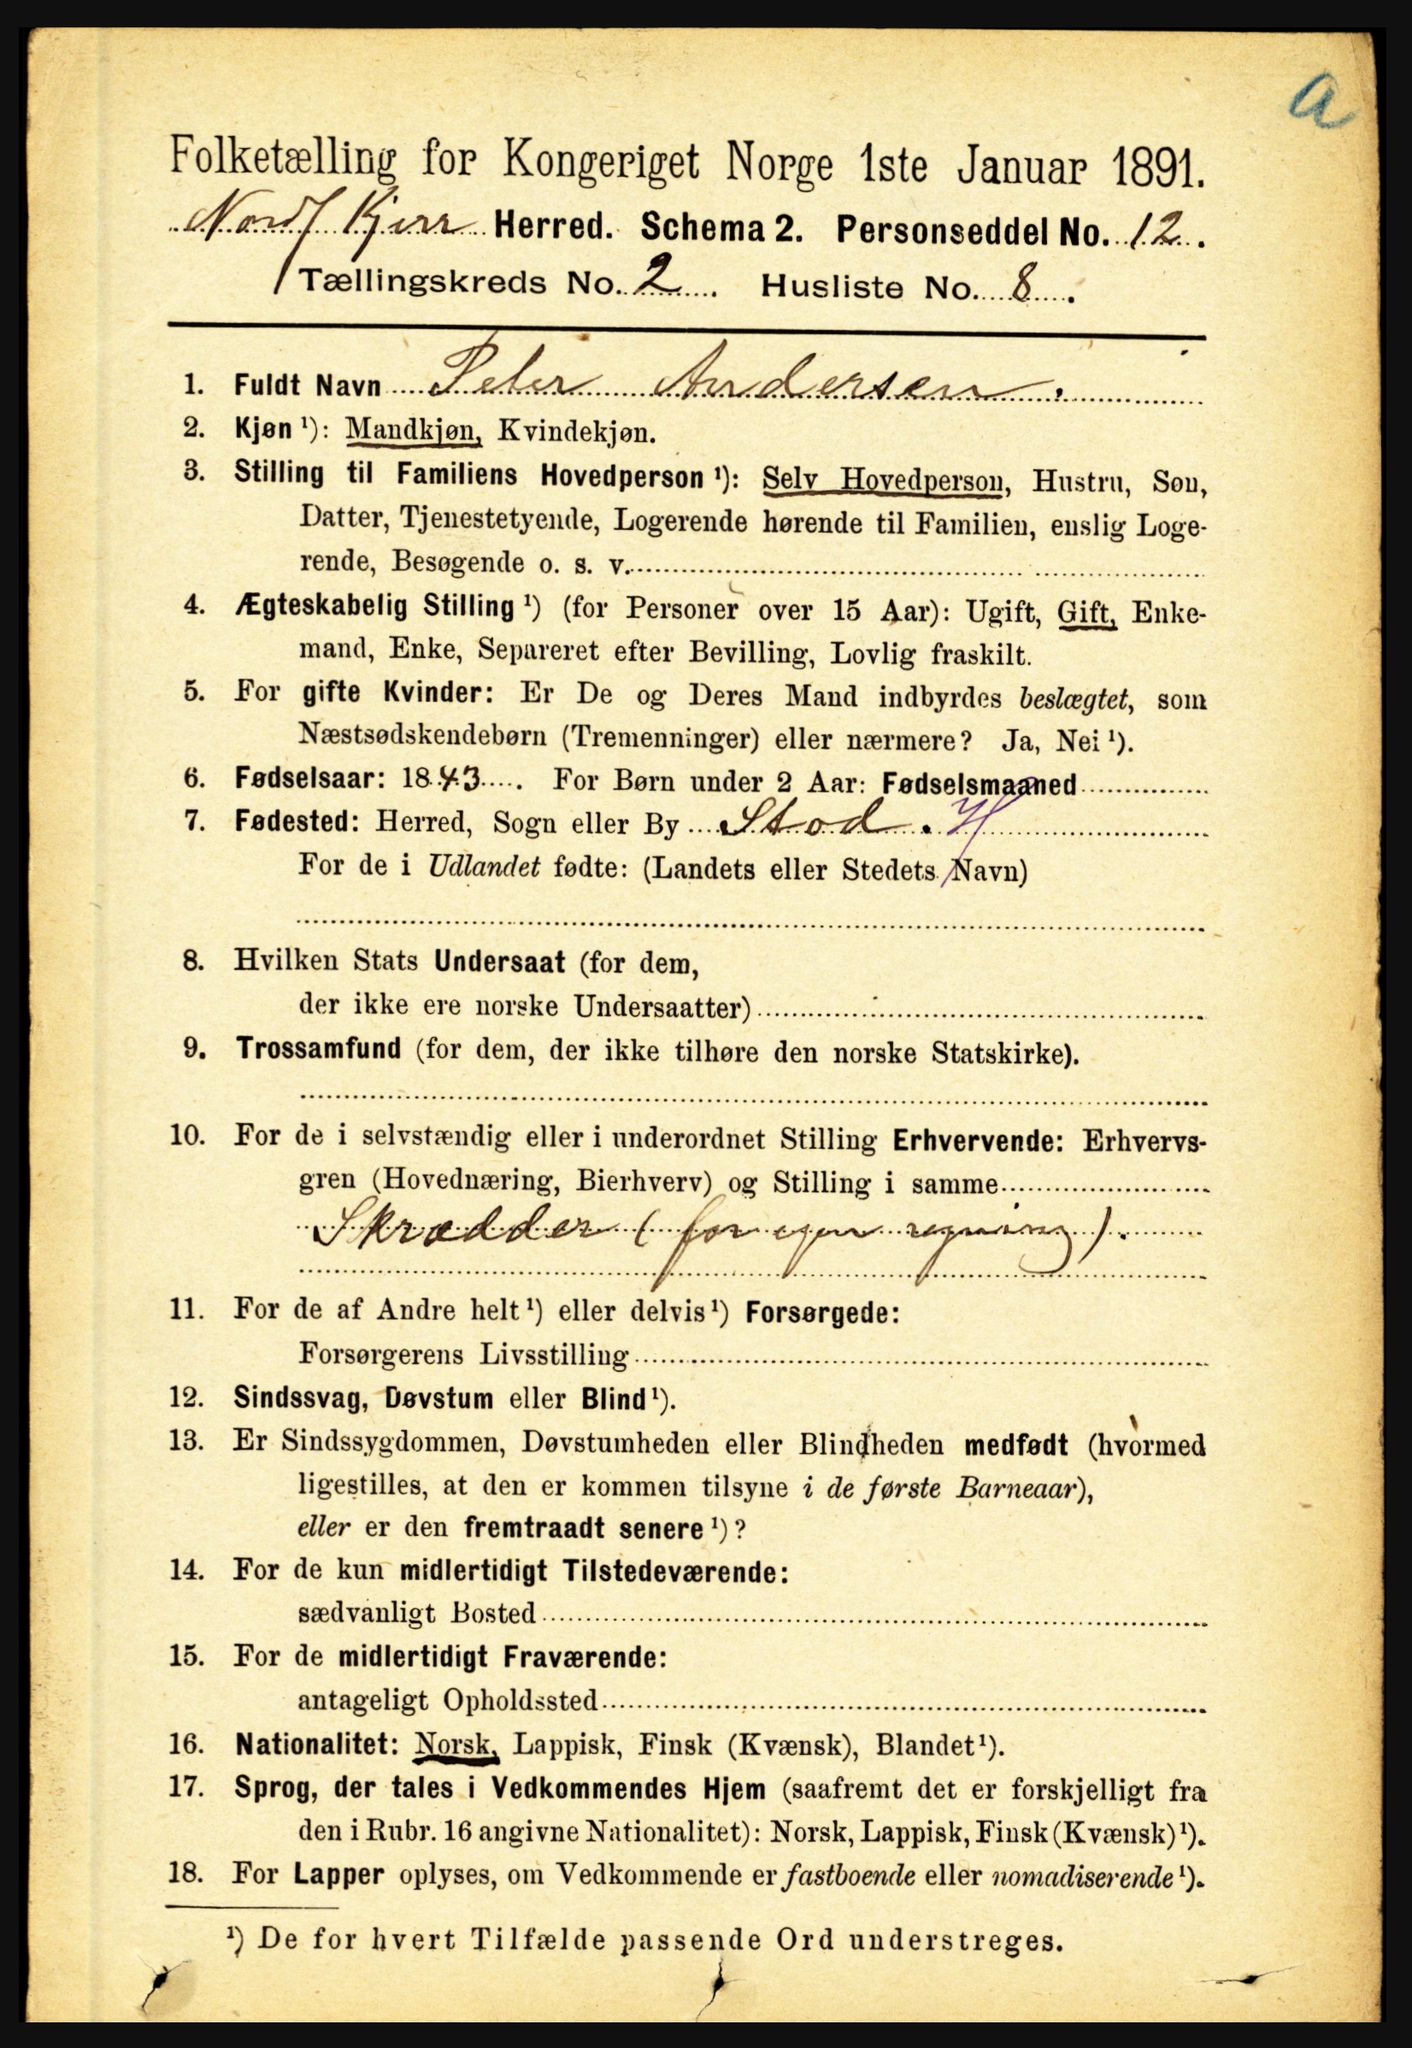 a
Folketælling for Kongeriget Norge 1ste Januar 1891.
Herred. Schema 2. Personseddel No. 12.
Tællingskreds No. 2. Husliste No. 8.
1. Fuldt Navn Peter Andersen.
2. Kjøn ¹): Mandkjøn, Kvindekjøn.
3. Stilling til Familiens Hovedperson ¹): Selv Hovedperson, Hustru, Søn,
Datter, Tjenestetyende, Logerende hørende til Familien, enslig Loge-
rende, Besøgende o. s. v.
4. Ægteskabelig Stilling ¹) (for Personer over 15 Aar): Ugift, Gift, Enke-
mand, Enke, Separeret efter Bevilling, Lovlig fraskilt.
5. For gifte Kvinder: Er De og Deres Mand indbyrdes beslægtet, som
Næstsødskendebørn (Tremenninger) eller nærmere? Ja, Nei ¹).
6. Fødselsaar: 1843. For Børn under 2 Aar: Fødselsmaaned
7. Fødested: Herred, Sogn eller By Stod. H
For de i Udlandet fødte: (Landets eller Stedets Navn)
8. Hvilken Stats Undersaat (for dem,
der ikke ere norske Undersaatter)
9. Trossamfund (for dem, der ikke tilhøre den norske Statskirke).
10. For de i selvstændig eller i underordnet Stilling Erhvervende: Erhvervs-
gren (Hovednæring, Bierhverv) og Stilling i samme
Skrædder (for egen regning).
11. For de af Andre helt ¹) eller delvis ¹) Forsørgede:
Forsørgerens Livsstilling
12. Sindssvag, Døvstum eller Blind ¹).
13. Er Sindssygdommen, Døvstumheden eller Blindheden medfødt (hvormed
ligestilles, at den er kommen tilsyne i de første Barneaar),
eller er den fremtraadt senere ¹)?
14. For de kun midlertidigt Tilstedeværende:
sædvanligt Bosted
15. For de midlertidigt Fraværende:
antageligt Opholdssted
16. Nationalitet: Norsk, Lappisk, Finsk (Kvænsk), Blandet ¹).
17. Sprog, der tales i Vedkommendes Hjem (saafremt det er forskjelligt fra
den i Rubr. 16 angivne Nationalitet): Norsk, Lappisk, Finsk (Kvænsk) ¹).
18. For Lapper oplyses, om Vedkommende er fastboende eller nomadiserende ¹).
¹) De for hvert Tilfælde passende Ord understreges.